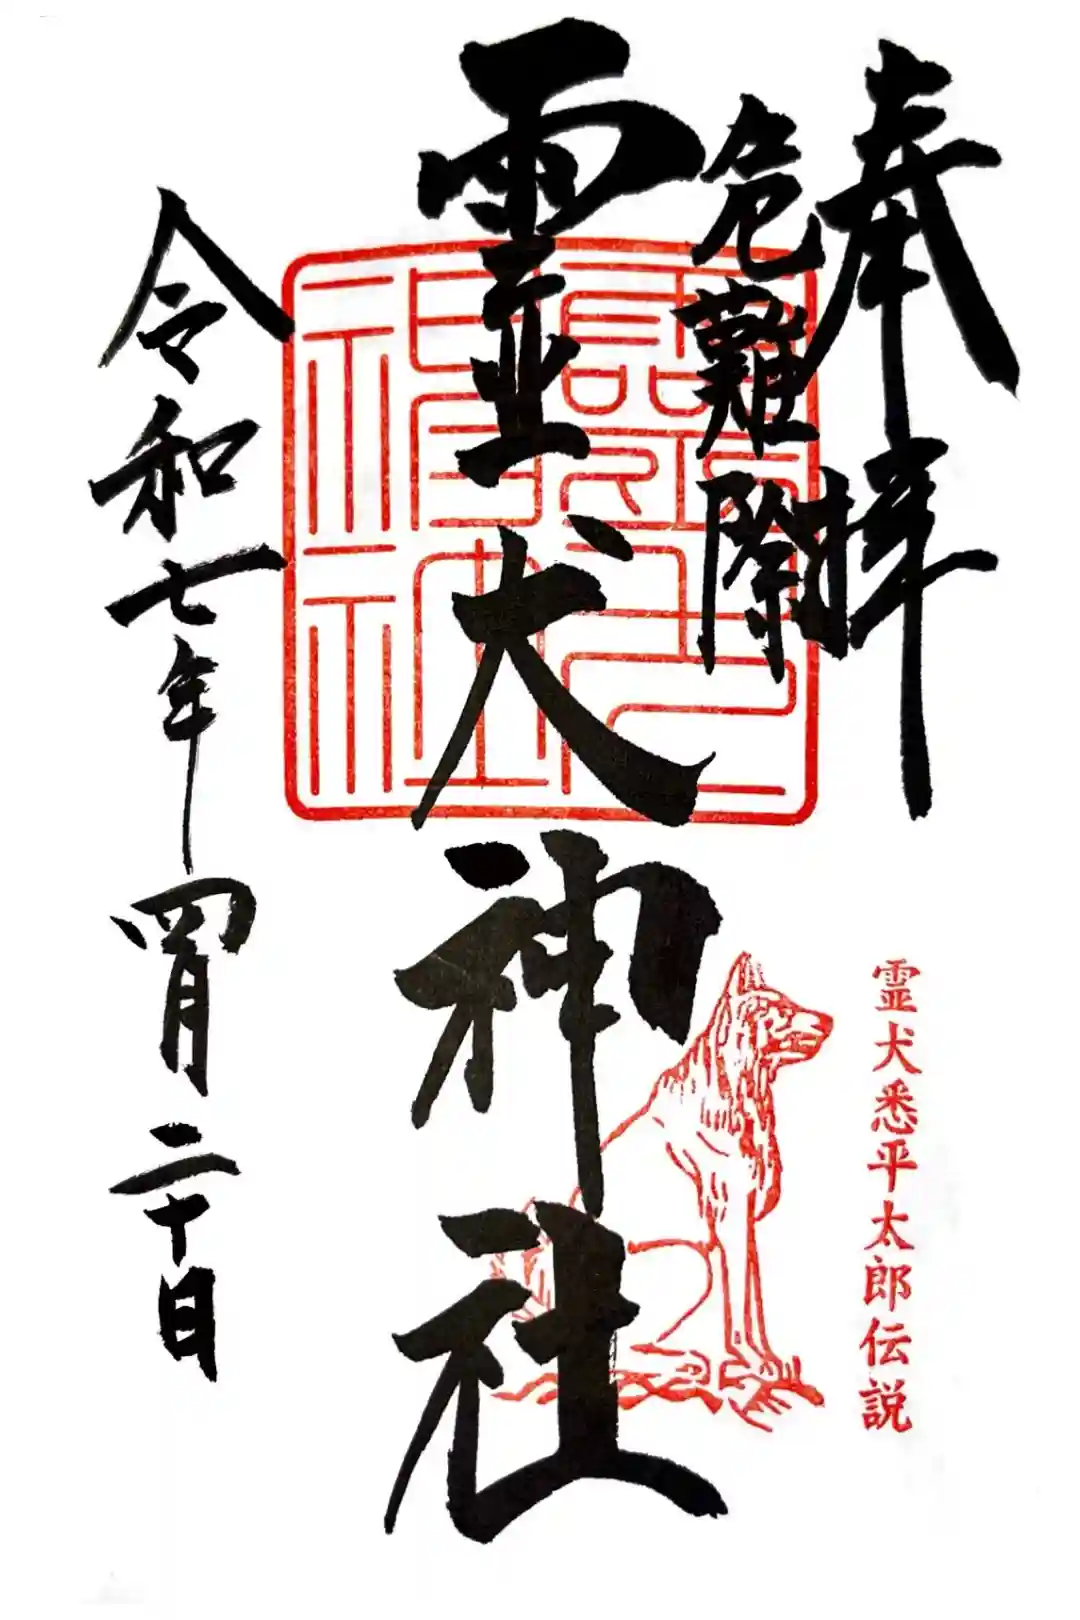 奉拝
危難際
霊犬神社
令和七年四月二十日
霊犬悉平太郎伝説